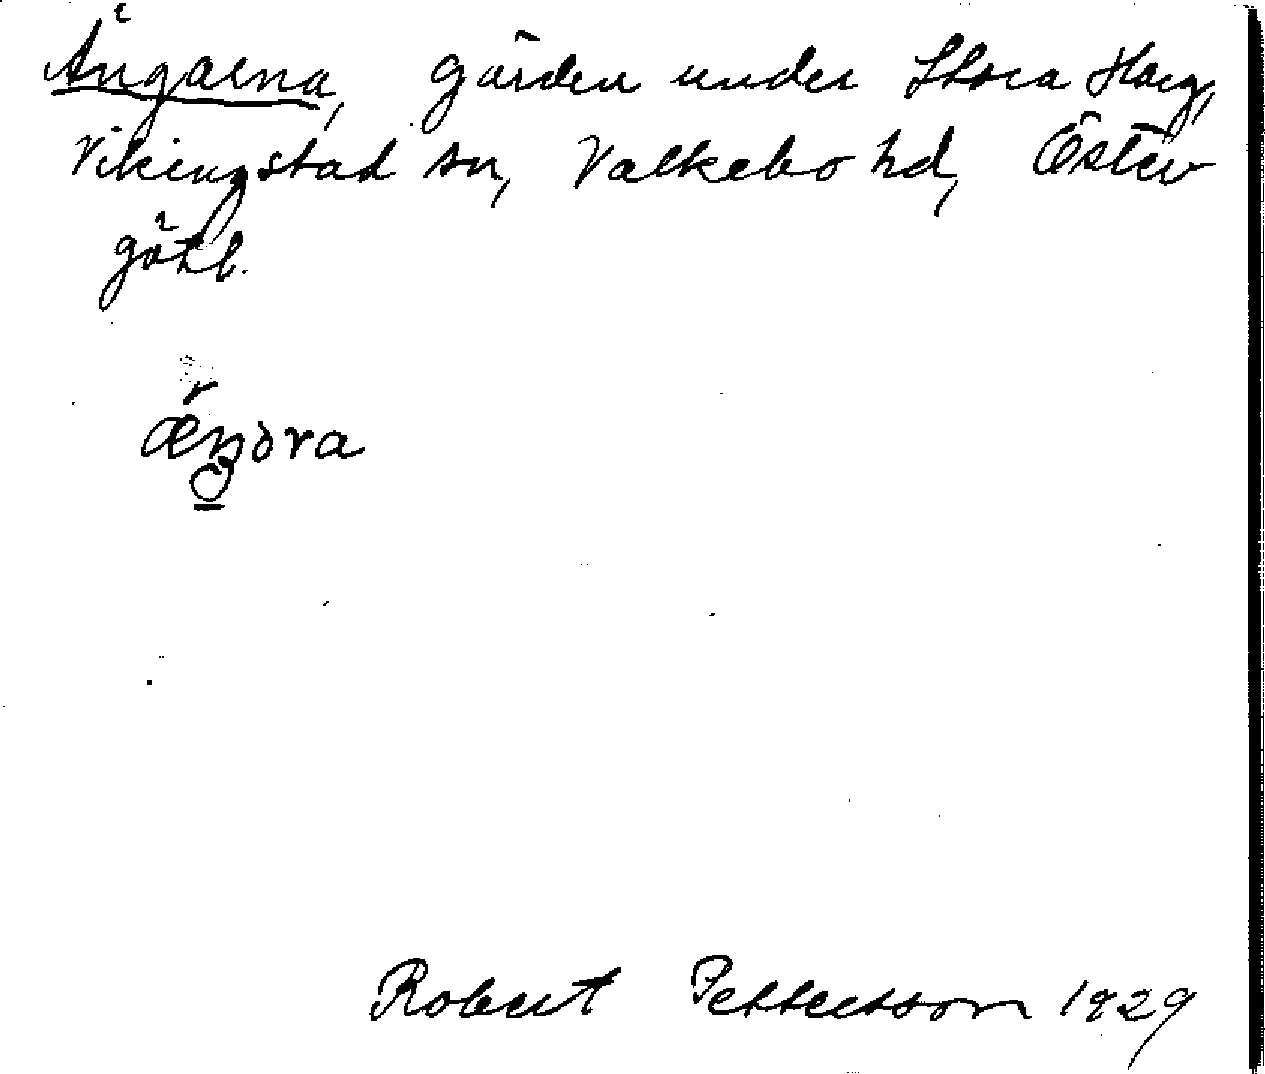 Ängarna, gärden under Stora Harg,
Vikingstad sn, Valkebo hd, Öster
götl.
Robert Pettersson 1929